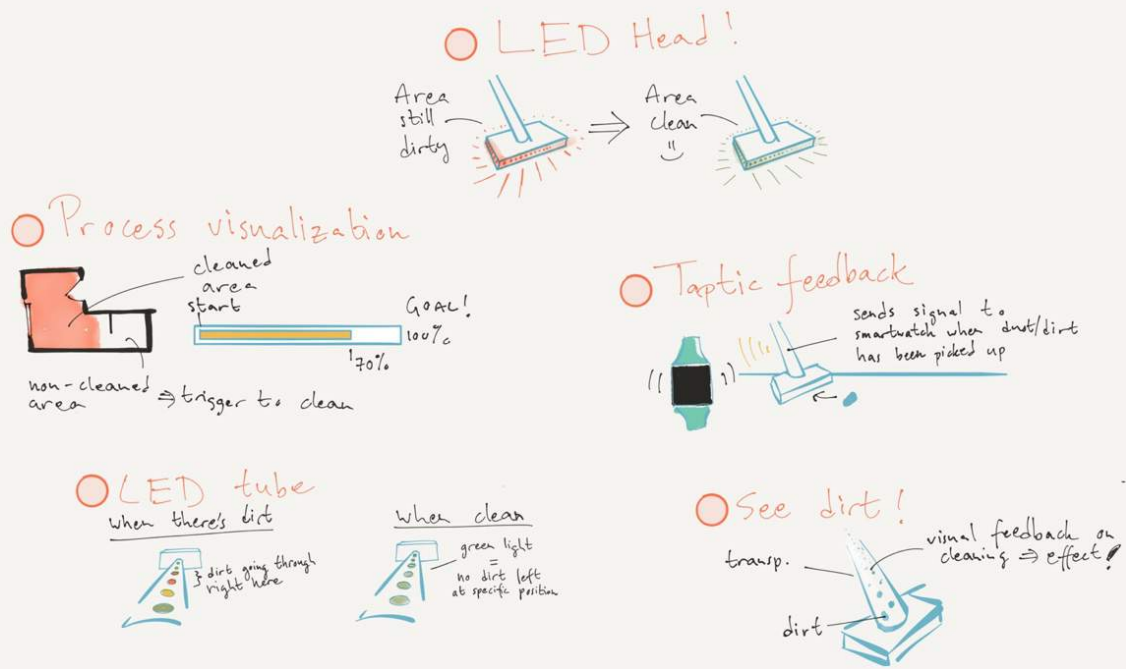 LED Head!
Area
still
dirty
⇒
Area
clean
Process visualization
cleaned
area
start
GOAL!
100%
70%
non-cleaned
area ⇒ trigger to clean
Taptic feedback
sends signal to
smartwatch when dust/dirt
has been picked up
LED tube
when there's dirt
dirt going through
right here
when clean
green light
=
no dirt left
at specific position
See dirt!
transp.
visual feedback on
cleaning ⇒ effect!
dirt